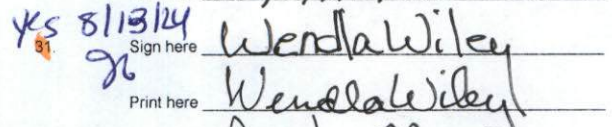 yes 8/13/24
31. Sign here Wendla Wiley
Print here Wendla Wiley